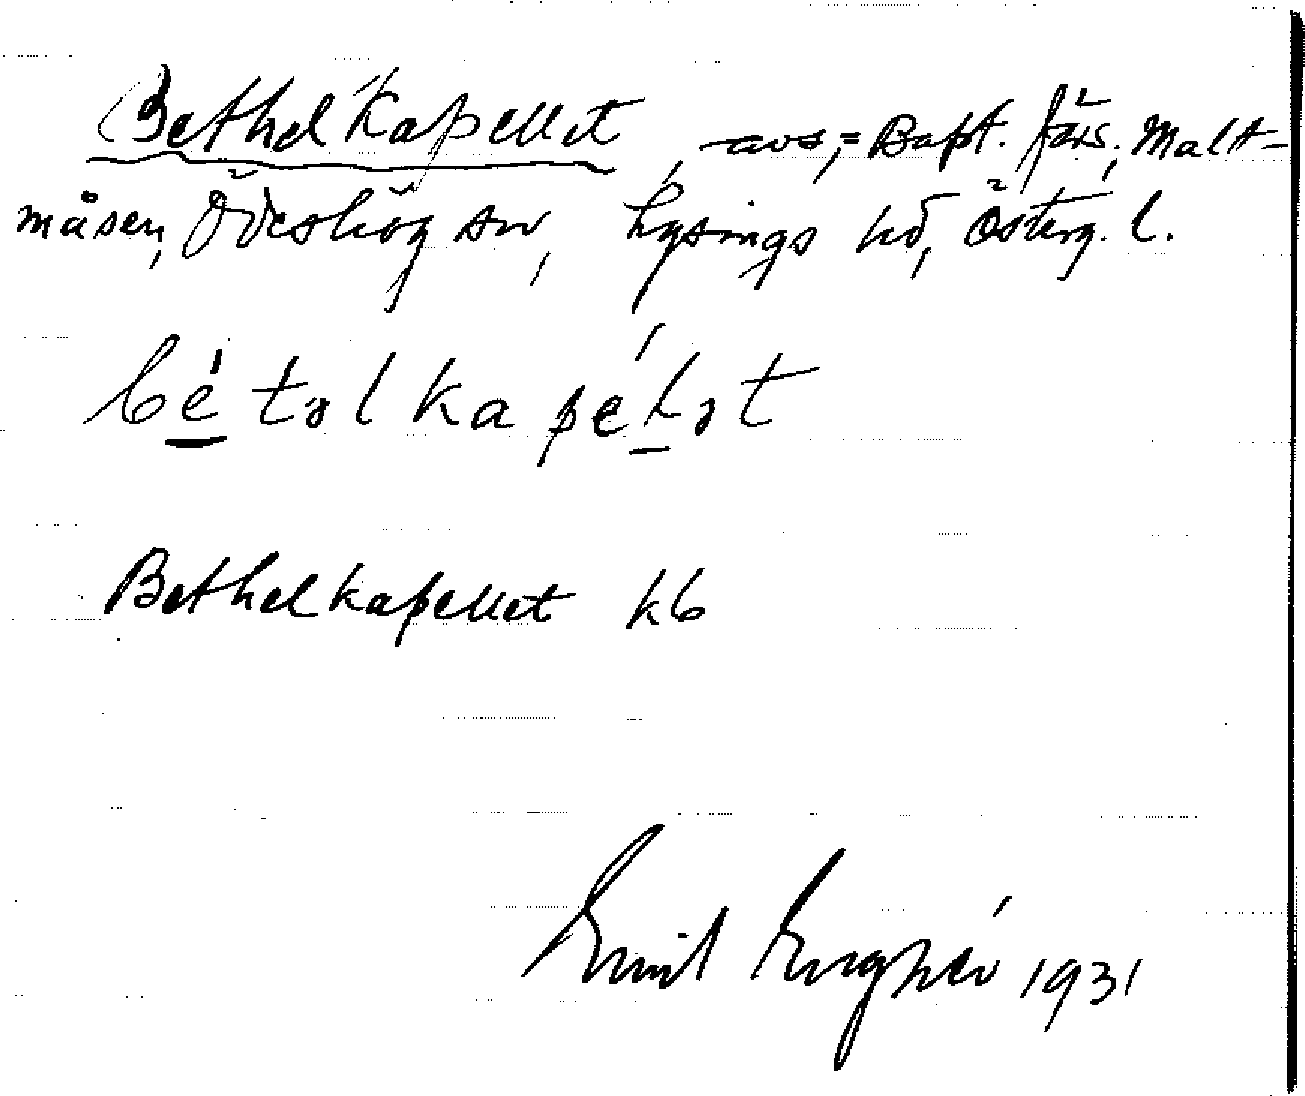 Bethelkapellet, avs, = Bapt. förs., Malt-
måsen, Ödeshög sn, Lysings hd, Österg. l.
bétəlkapélət
Bethelkapellet kb
Emil 1931